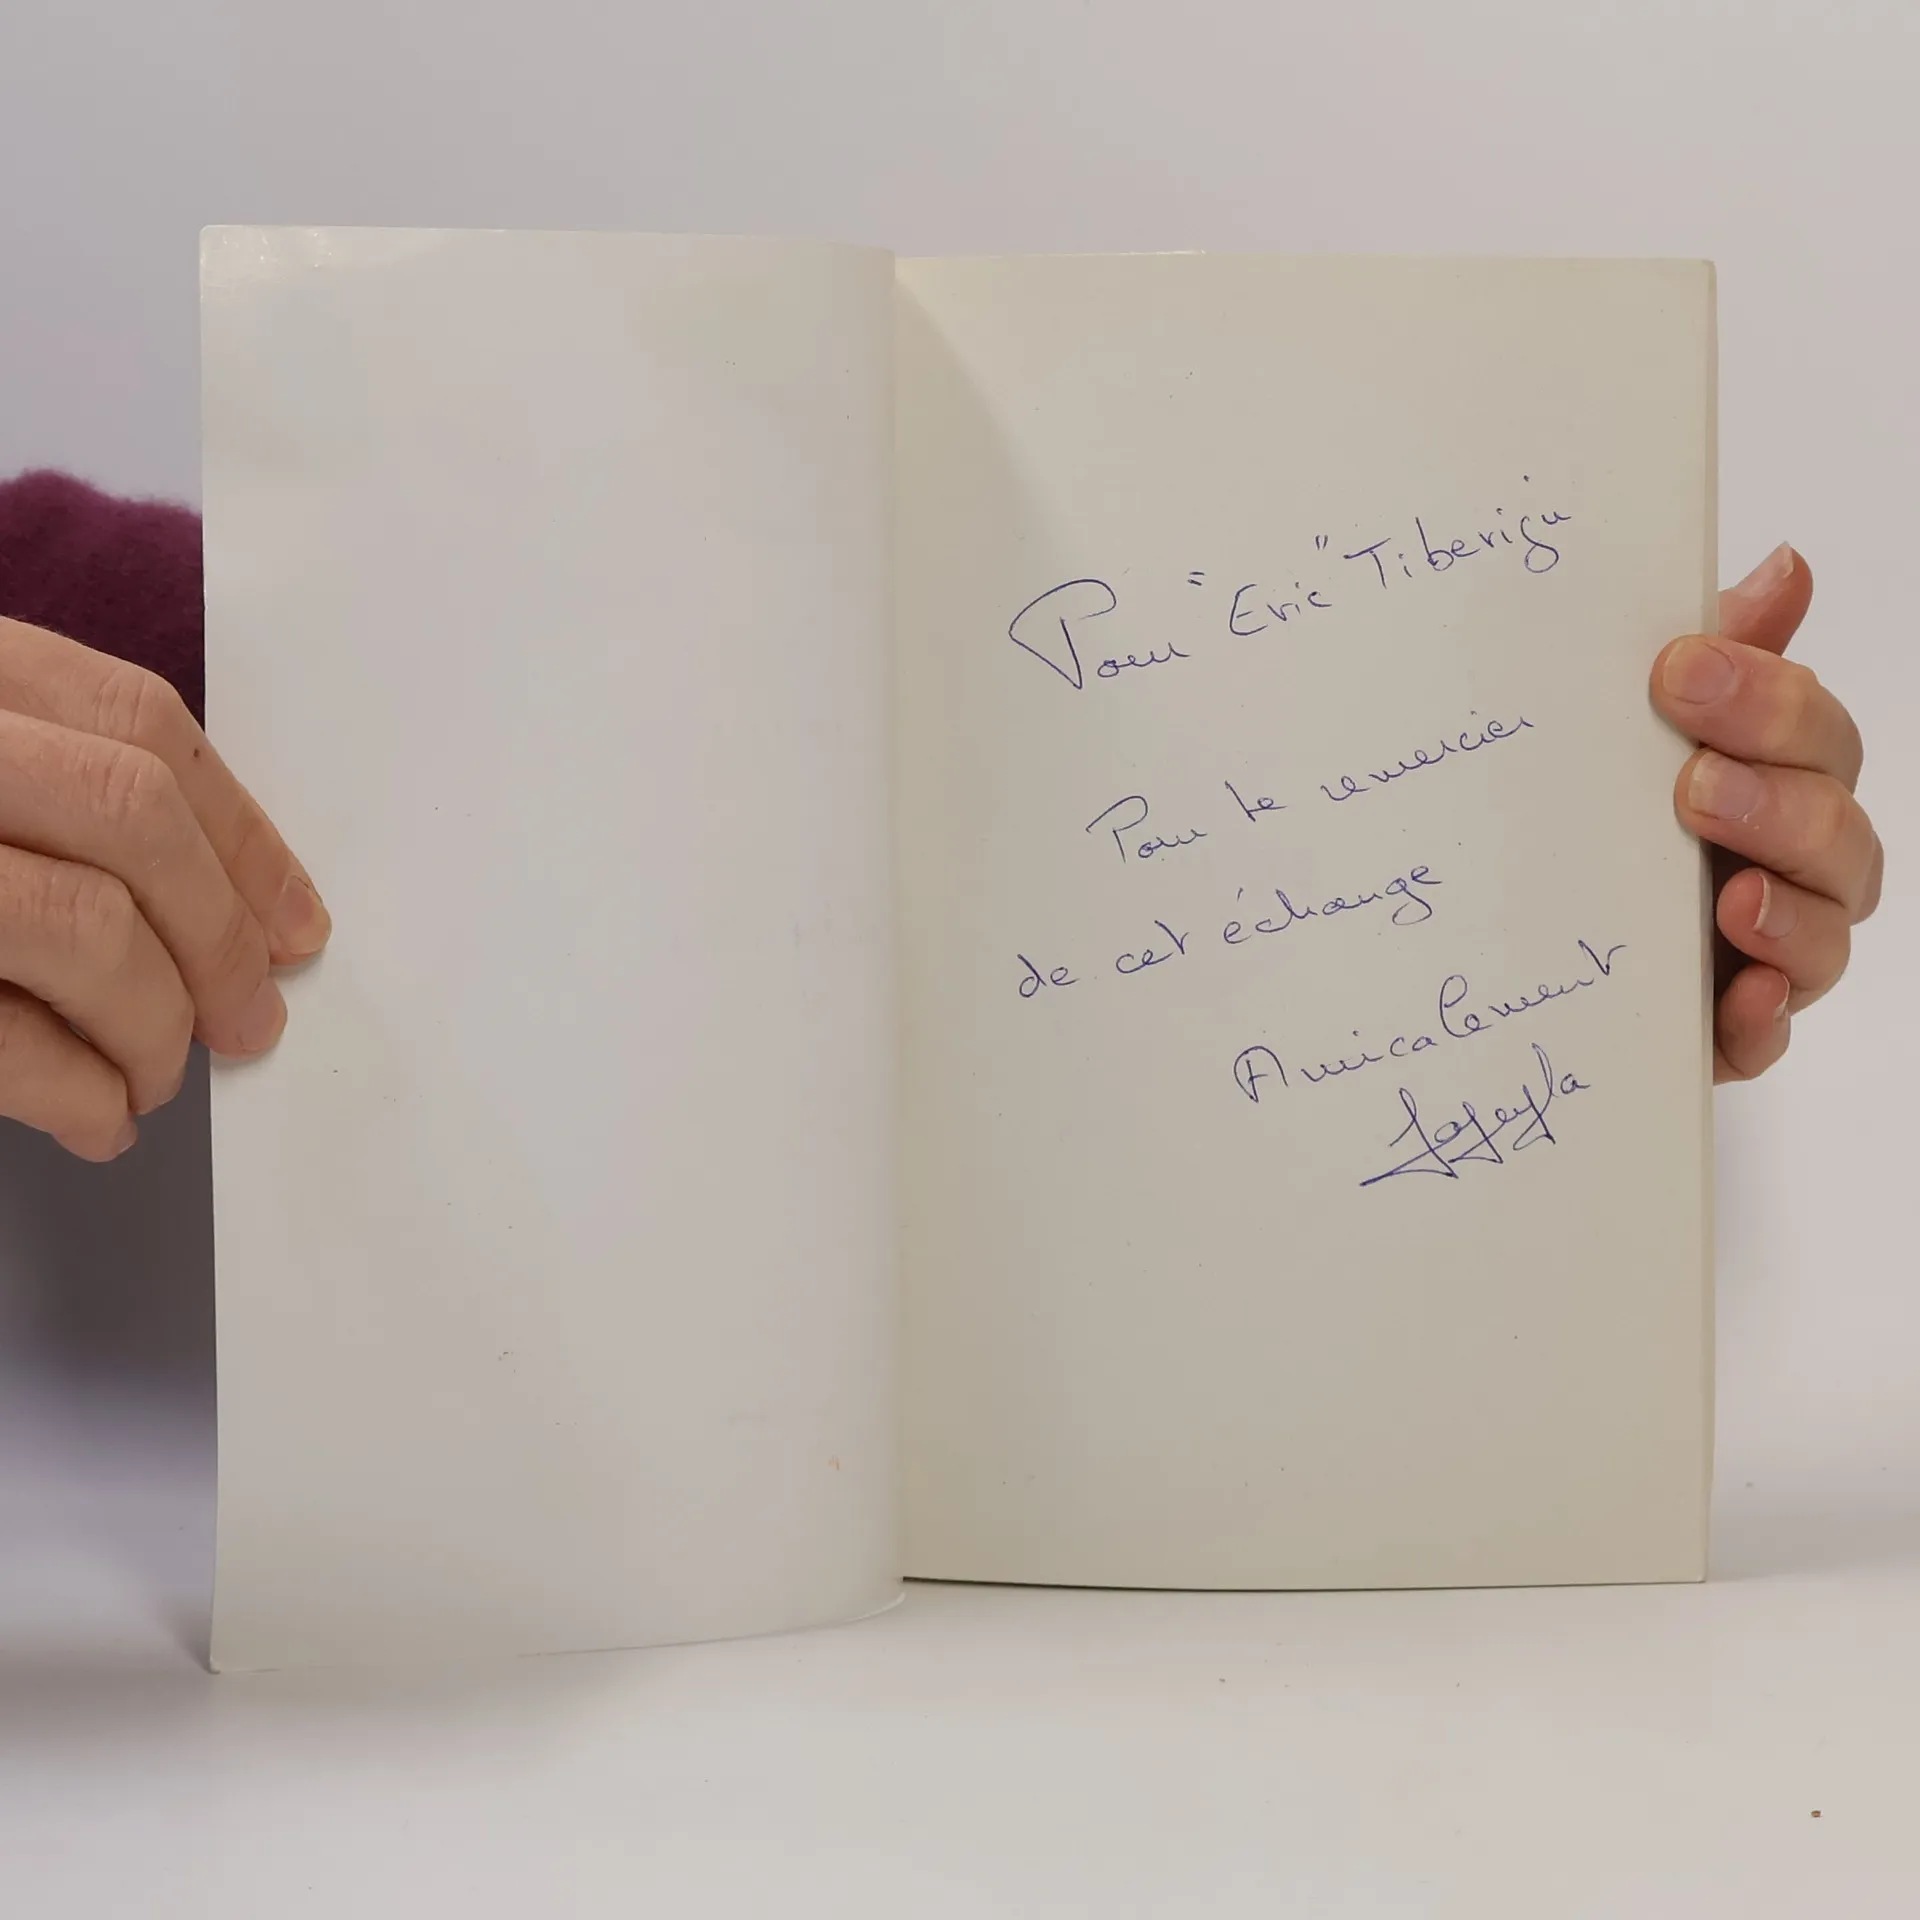 Pour "Eric" Tiberigu
Pour te remercier
de cet échange
Amicalement